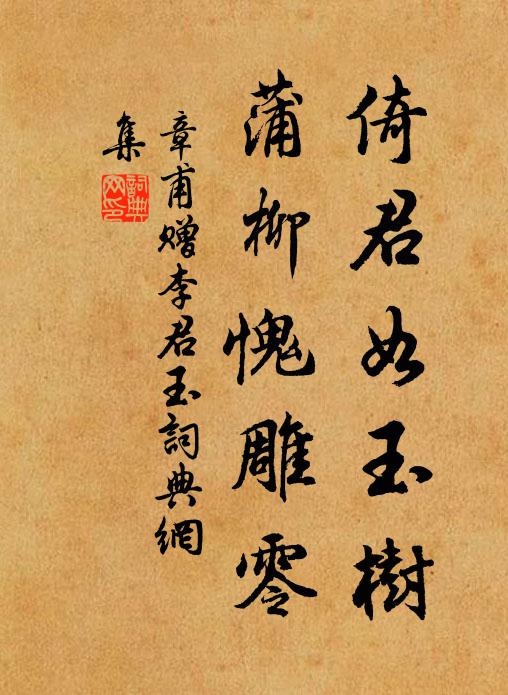 倚君如玉樹
蒲柳愧雕零
章甫贈李君玉詞典網
集
詞典
网印